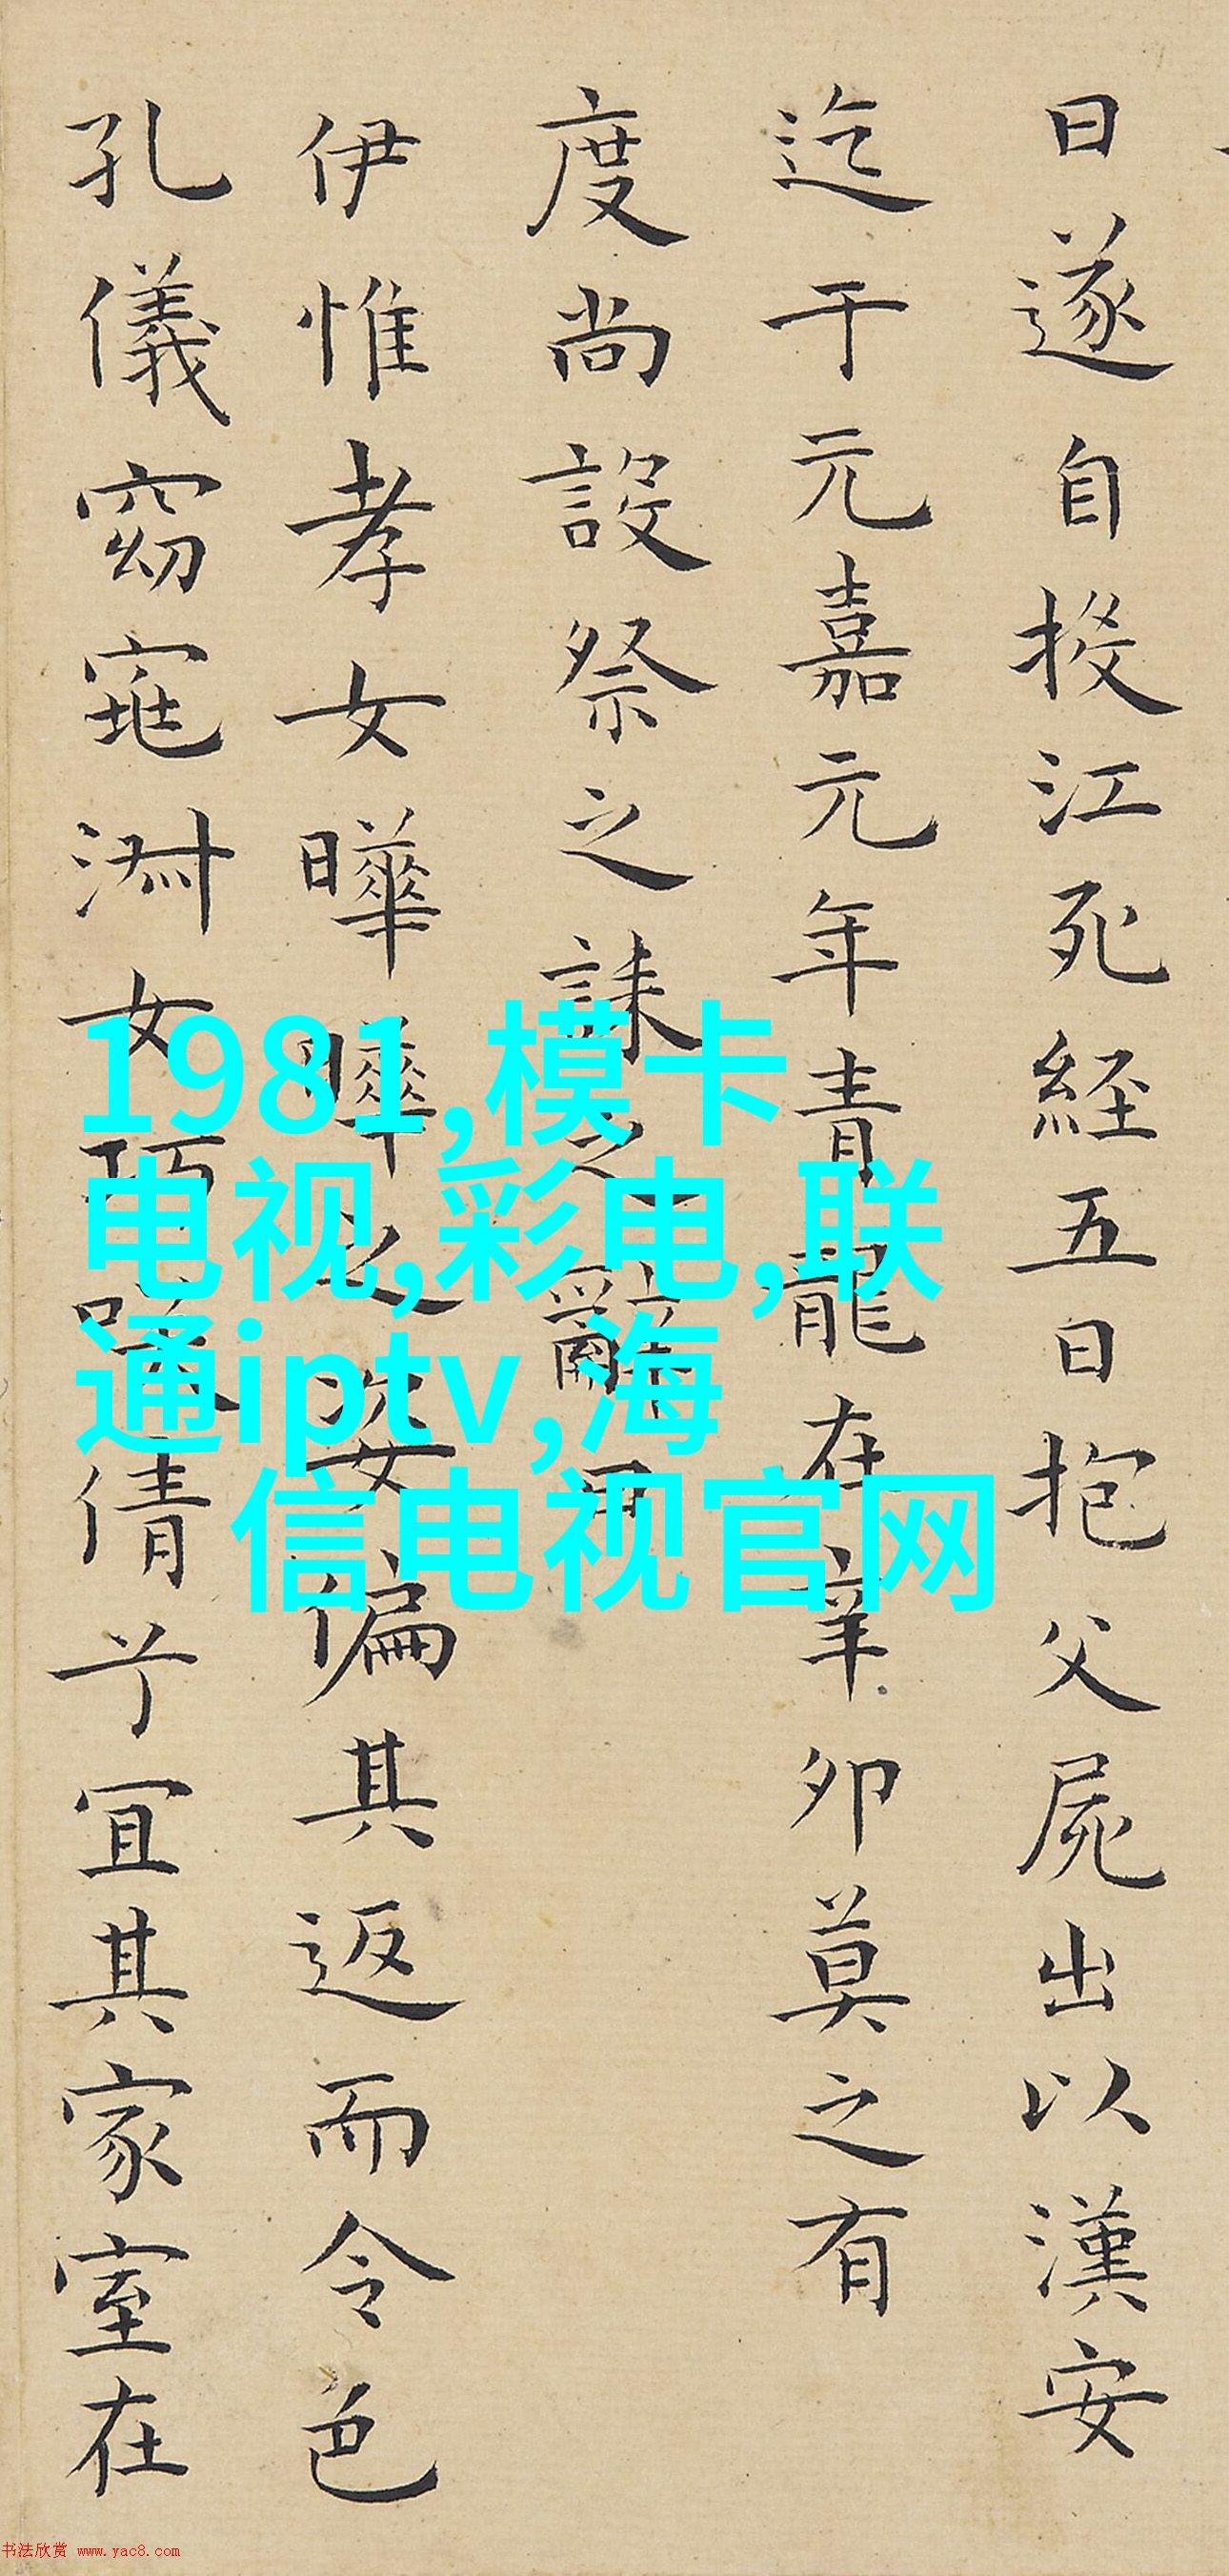 日遂自投江死経五日抱父屍出以漢安
迄于元嘉元年青龍在辛卯莫之有
度尚設祭之誄之辭曰
伊惟孝女曄曄之姿偏其返而令色
孔儀窈窕淑女巧咲倩兮宜其家室在
1981,模卡
电视,彩电,联
通iptv,海
信电视官网
书法欣赏 www.yac8.com